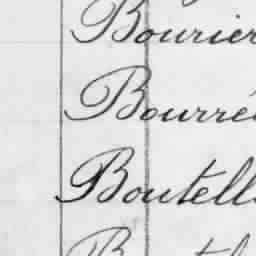 Bourier
Bourré
Boutell